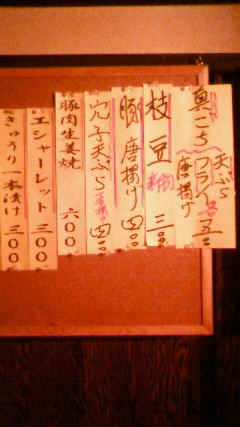 真こち
天ぷら
フライ
唐揚げ
五〇〇
枝豆
三〇〇
豚唐揚げ 四〇〇
穴子天ぷら
四〇〇
豚肉生姜焼 六〇〇
エシャーレット 三〇〇
きゅうり一本漬け 三〇〇